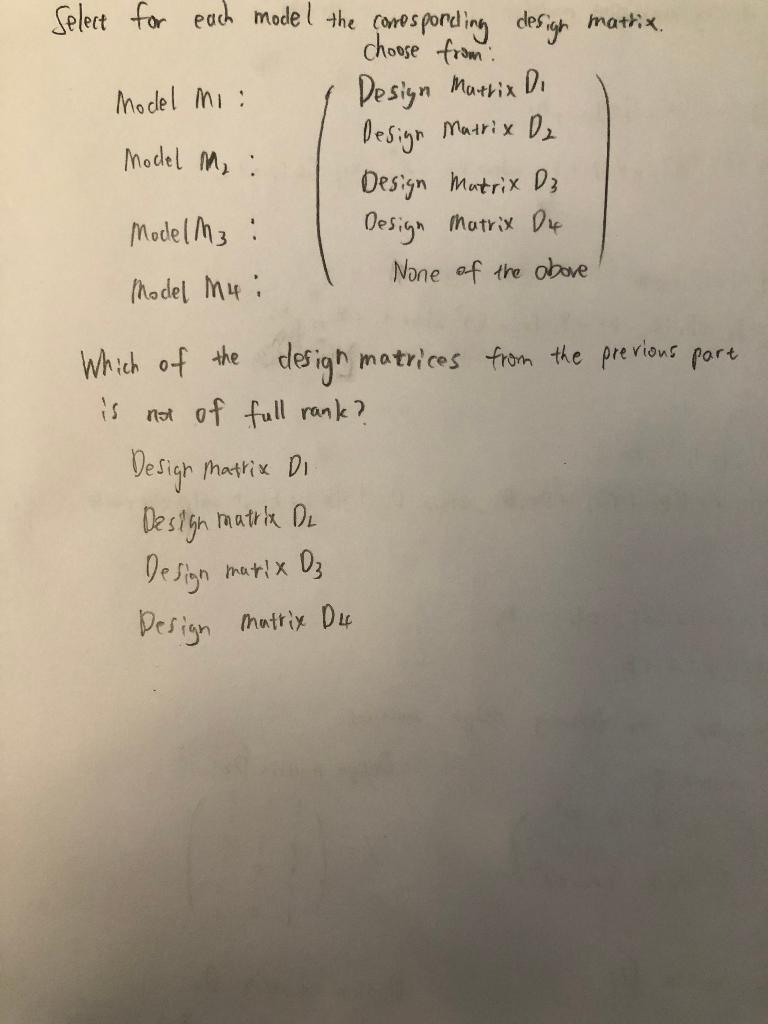 Select for each model the corresponding design matrix.
choose from:
Model M1 :
Design Matrix D1
Design Matrix D2
Model M2 :
Design Matrix D3
Model M3 :
Design Matrix D4
None of the above
Model M4 :
Which of the design matrices from the previous part
is not of full rank?
Design matrix D1
Design matrix D2
Design matrix D3
Design matrix D4